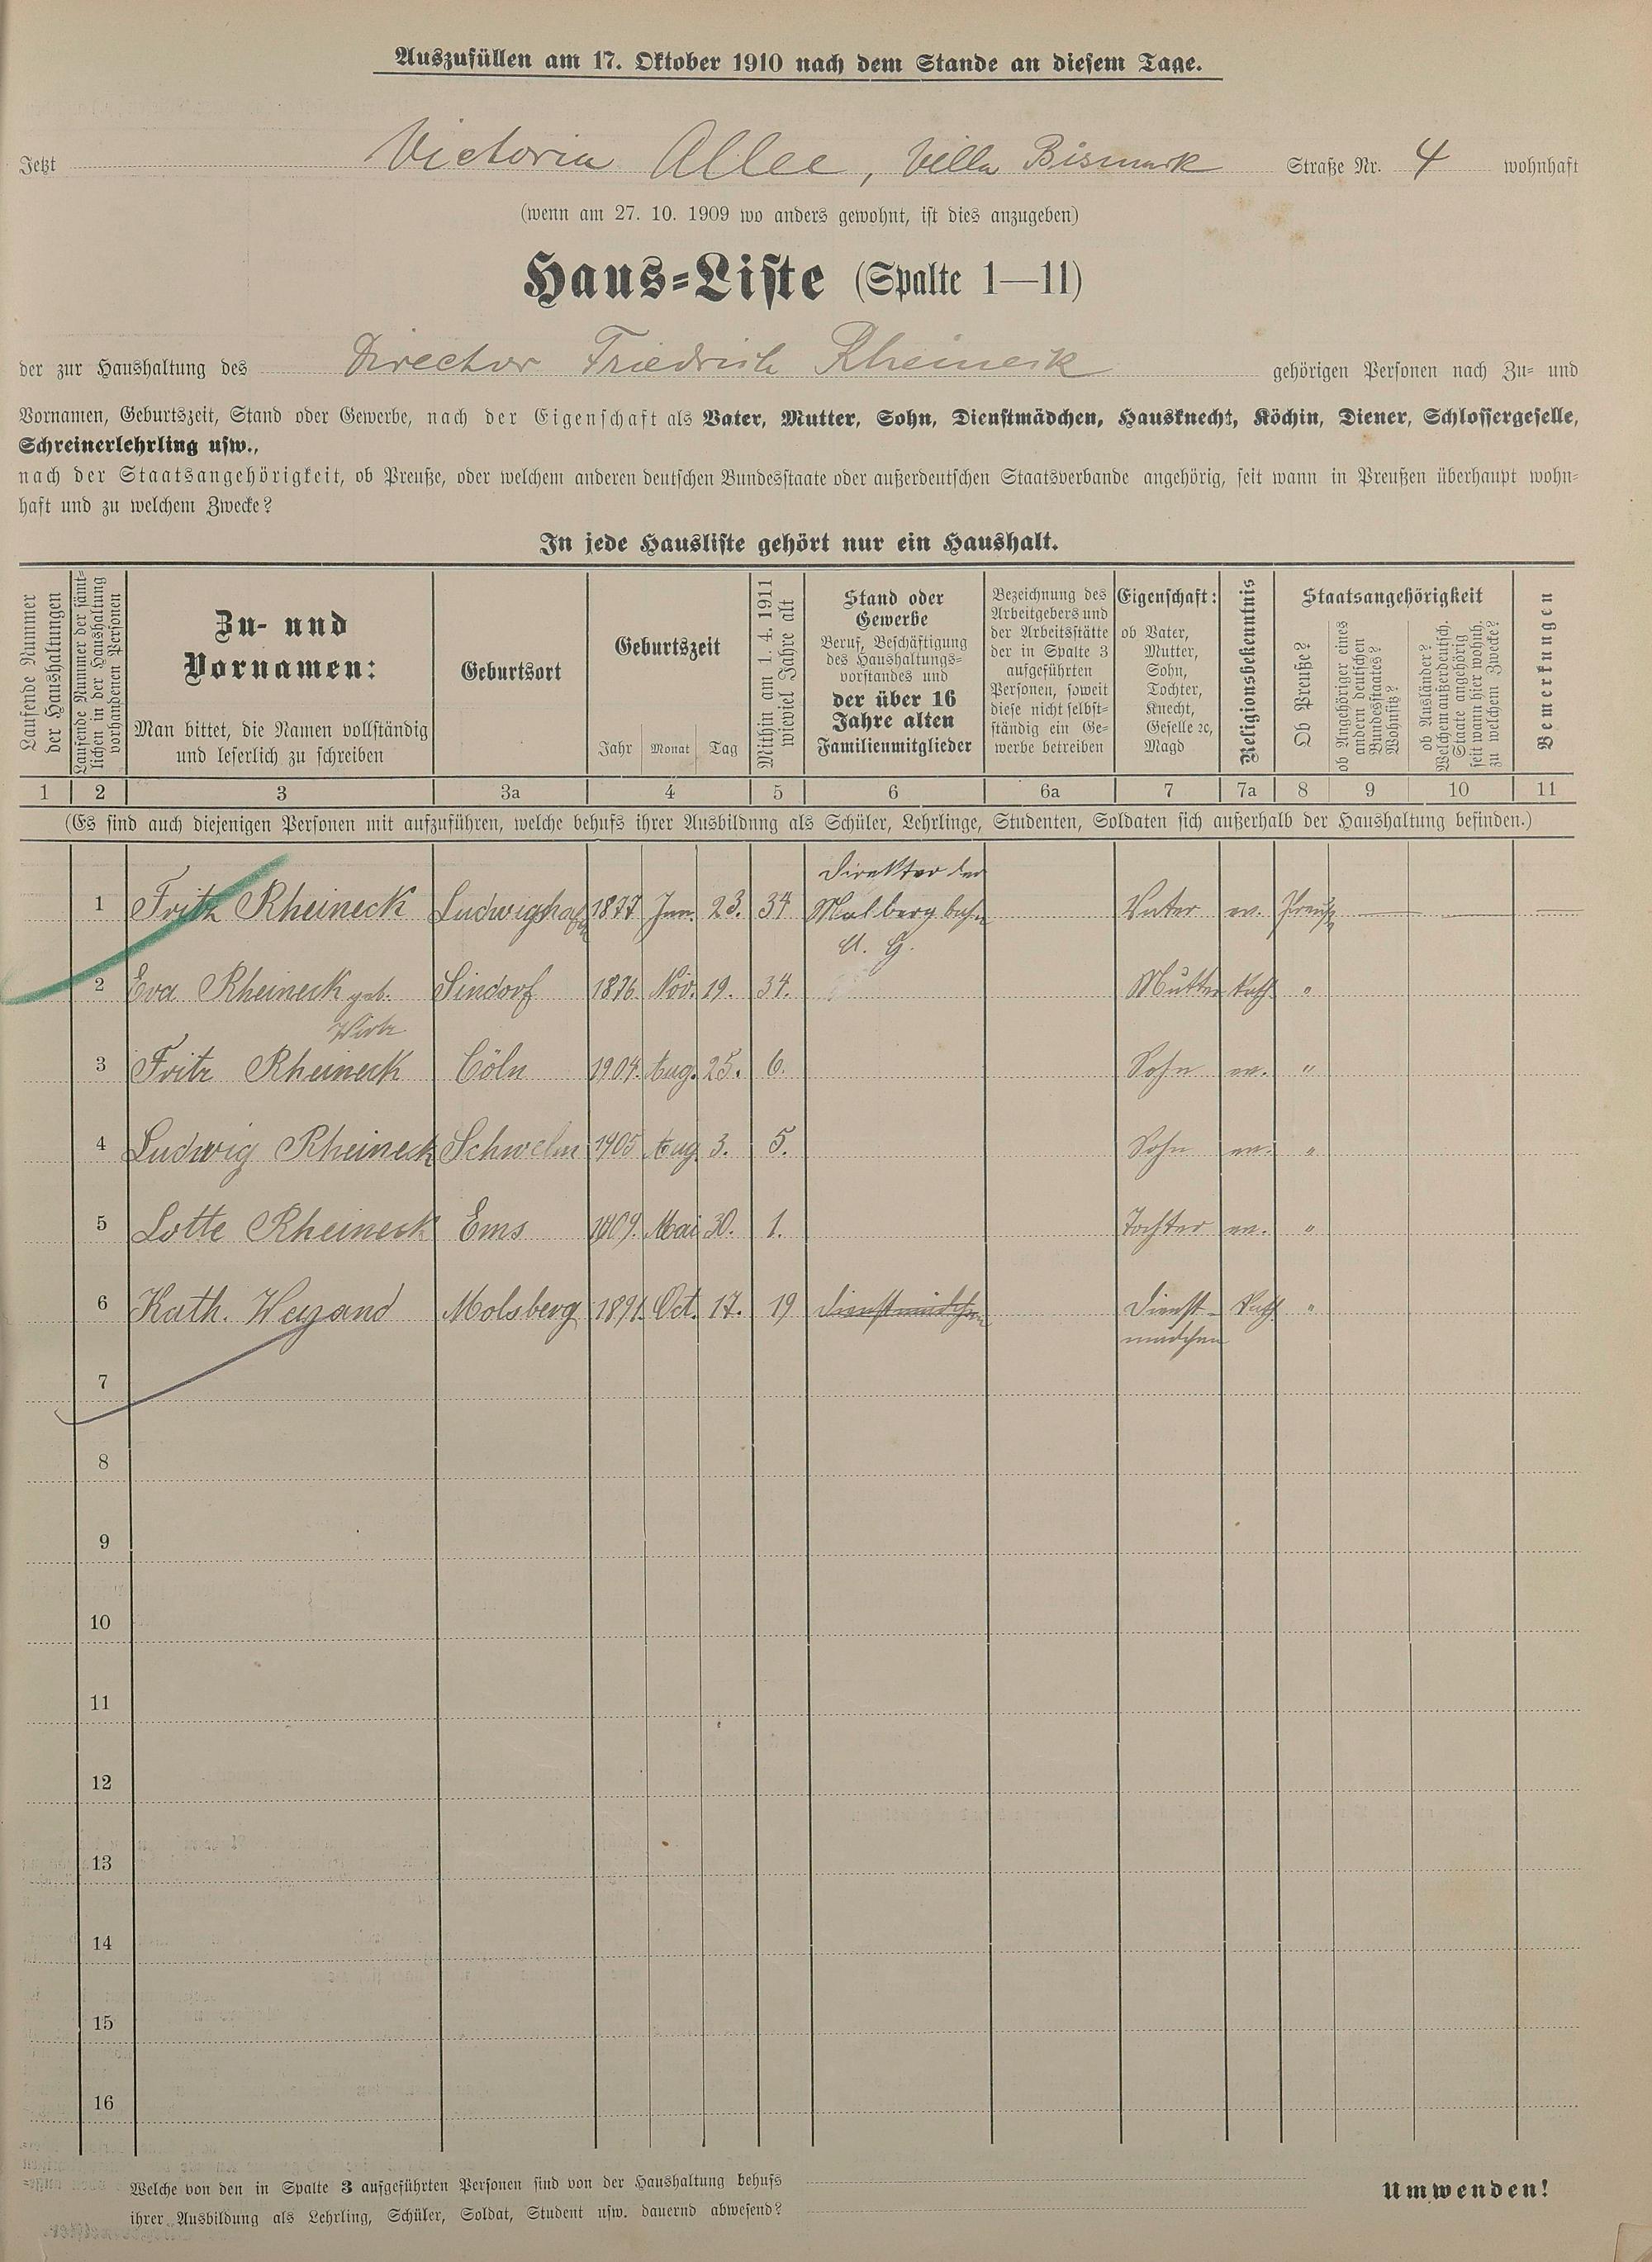 Auszufüllen am 17. Oktober 1910 nach dem Stande an diesem Tage.
Jetzt Victoria Allee, Villa Bismark Straße Nr. 4 wohnhaft
(wenn am 27. 10. 1909 wo anders gewohnt, ist dies anzugeben)
Haus-Liste (Spalte 1—11)
der zur Haushaltung des Director Friedrich Rheineck gehörigen Personen nach Zu- und
Vornamen, Geburtszeit, Stand oder Gewerbe, nach der Eigenschaft als Vater, Mutter, Sohn, Dienstmädchen, Hausknecht, Köchin, Diener, Schlossergeselle,
Schreinerlehrling usw.,
nach der Staatsangehörigkeit, ob Preuße, oder welchem anderen deutschen Bundesstaate oder außerdeutschen Staatsverbande angehörig, seit wann in Preußen überhaupt wohn-
haft und zu welchem Zwecke?
In jede Hausliste gehört nur ein Haushalt.
Laufende Nummer
der Haushaltungen
Laufende Nummer der sämt-
lichen in der Haushaltung
vorhandenen Personen
Zu- und
Vornamen:
Man bittet, die Namen vollständig
und leserlich zu schreiben
Geburtsort
Geburtszeit
Jahr Monat Tag
Mithin am 1. 4. 1911
wieviel Jahre alt
Stand oder
Gewerbe
Beruf, Beschäftigung
des Haushaltungs-
vorstandes und
der über 16
Jahre alten
Familienmitglieder
Bezeichnung des
Arbeitgebers und
der Arbeitsstätte
der in Spalte 3
aufgeführten
Personen, soweit
diese nicht selbst-
ständig ein Ge-
werbe betreiben
Eigenschaft:
ob Vater,
Mutter,
Sohn,
Tochter,
Knecht,
Geselle ec,
Magd
Religionsbekenntnis
Staatsangehörigkeit
Ob Preuße?
ob Angehöriger eines
andern deutschen
Bundesstaates?
Wohnsitz?
ob Ausländer?
Welchem außerdeutsch.
Staate angehörig
seit wann hier wohnh.
zu welchem Zwecke?
Bemerkungen
1 2 3 3a 4 5 6 6a 7 7a 8 9 10 11
(Es sind auch diejenigen Personen mit aufzuführen, welche behufs ihrer Ausbildung als Schüler, Lehrlinge, Studenten, Soldaten sich außerhalb der Haushaltung befinden.)
Direktor der
1 Fritz Rheineck Ludwigshafen 1877 Jan. 23. 34 Malbergbahn Vater ev. Preuße
A. G.
2 Eva Rheineck geb. Sindorf 1876 Nov. 19. 34. Mutter kath. "
Wirtz
3 Fritz Rheineck Cöln 1904. Aug. 25. 6. Sohn ev. "
4 Ludwig Rheineck Schwelm 1905 Aug. 3. 5. Sohn ev. "
5 Lotte Rheineck Ems 1909. Mai 30. 1. Tochter ev. "
6 Kath. Weyand Molsberg 1891. Oct. 17. 19 Dienstmädchen Dienst- kath. "
mädchen
7
8
9
10
11
12
13
14
15
16
Welche von den in Spalte 3 aufgeführten Personen sind von der Haushaltung behufs
ihrer Ausbildung als Lehrling, Schüler, Soldat, Student usw. dauernd abwesend?
Umwenden!